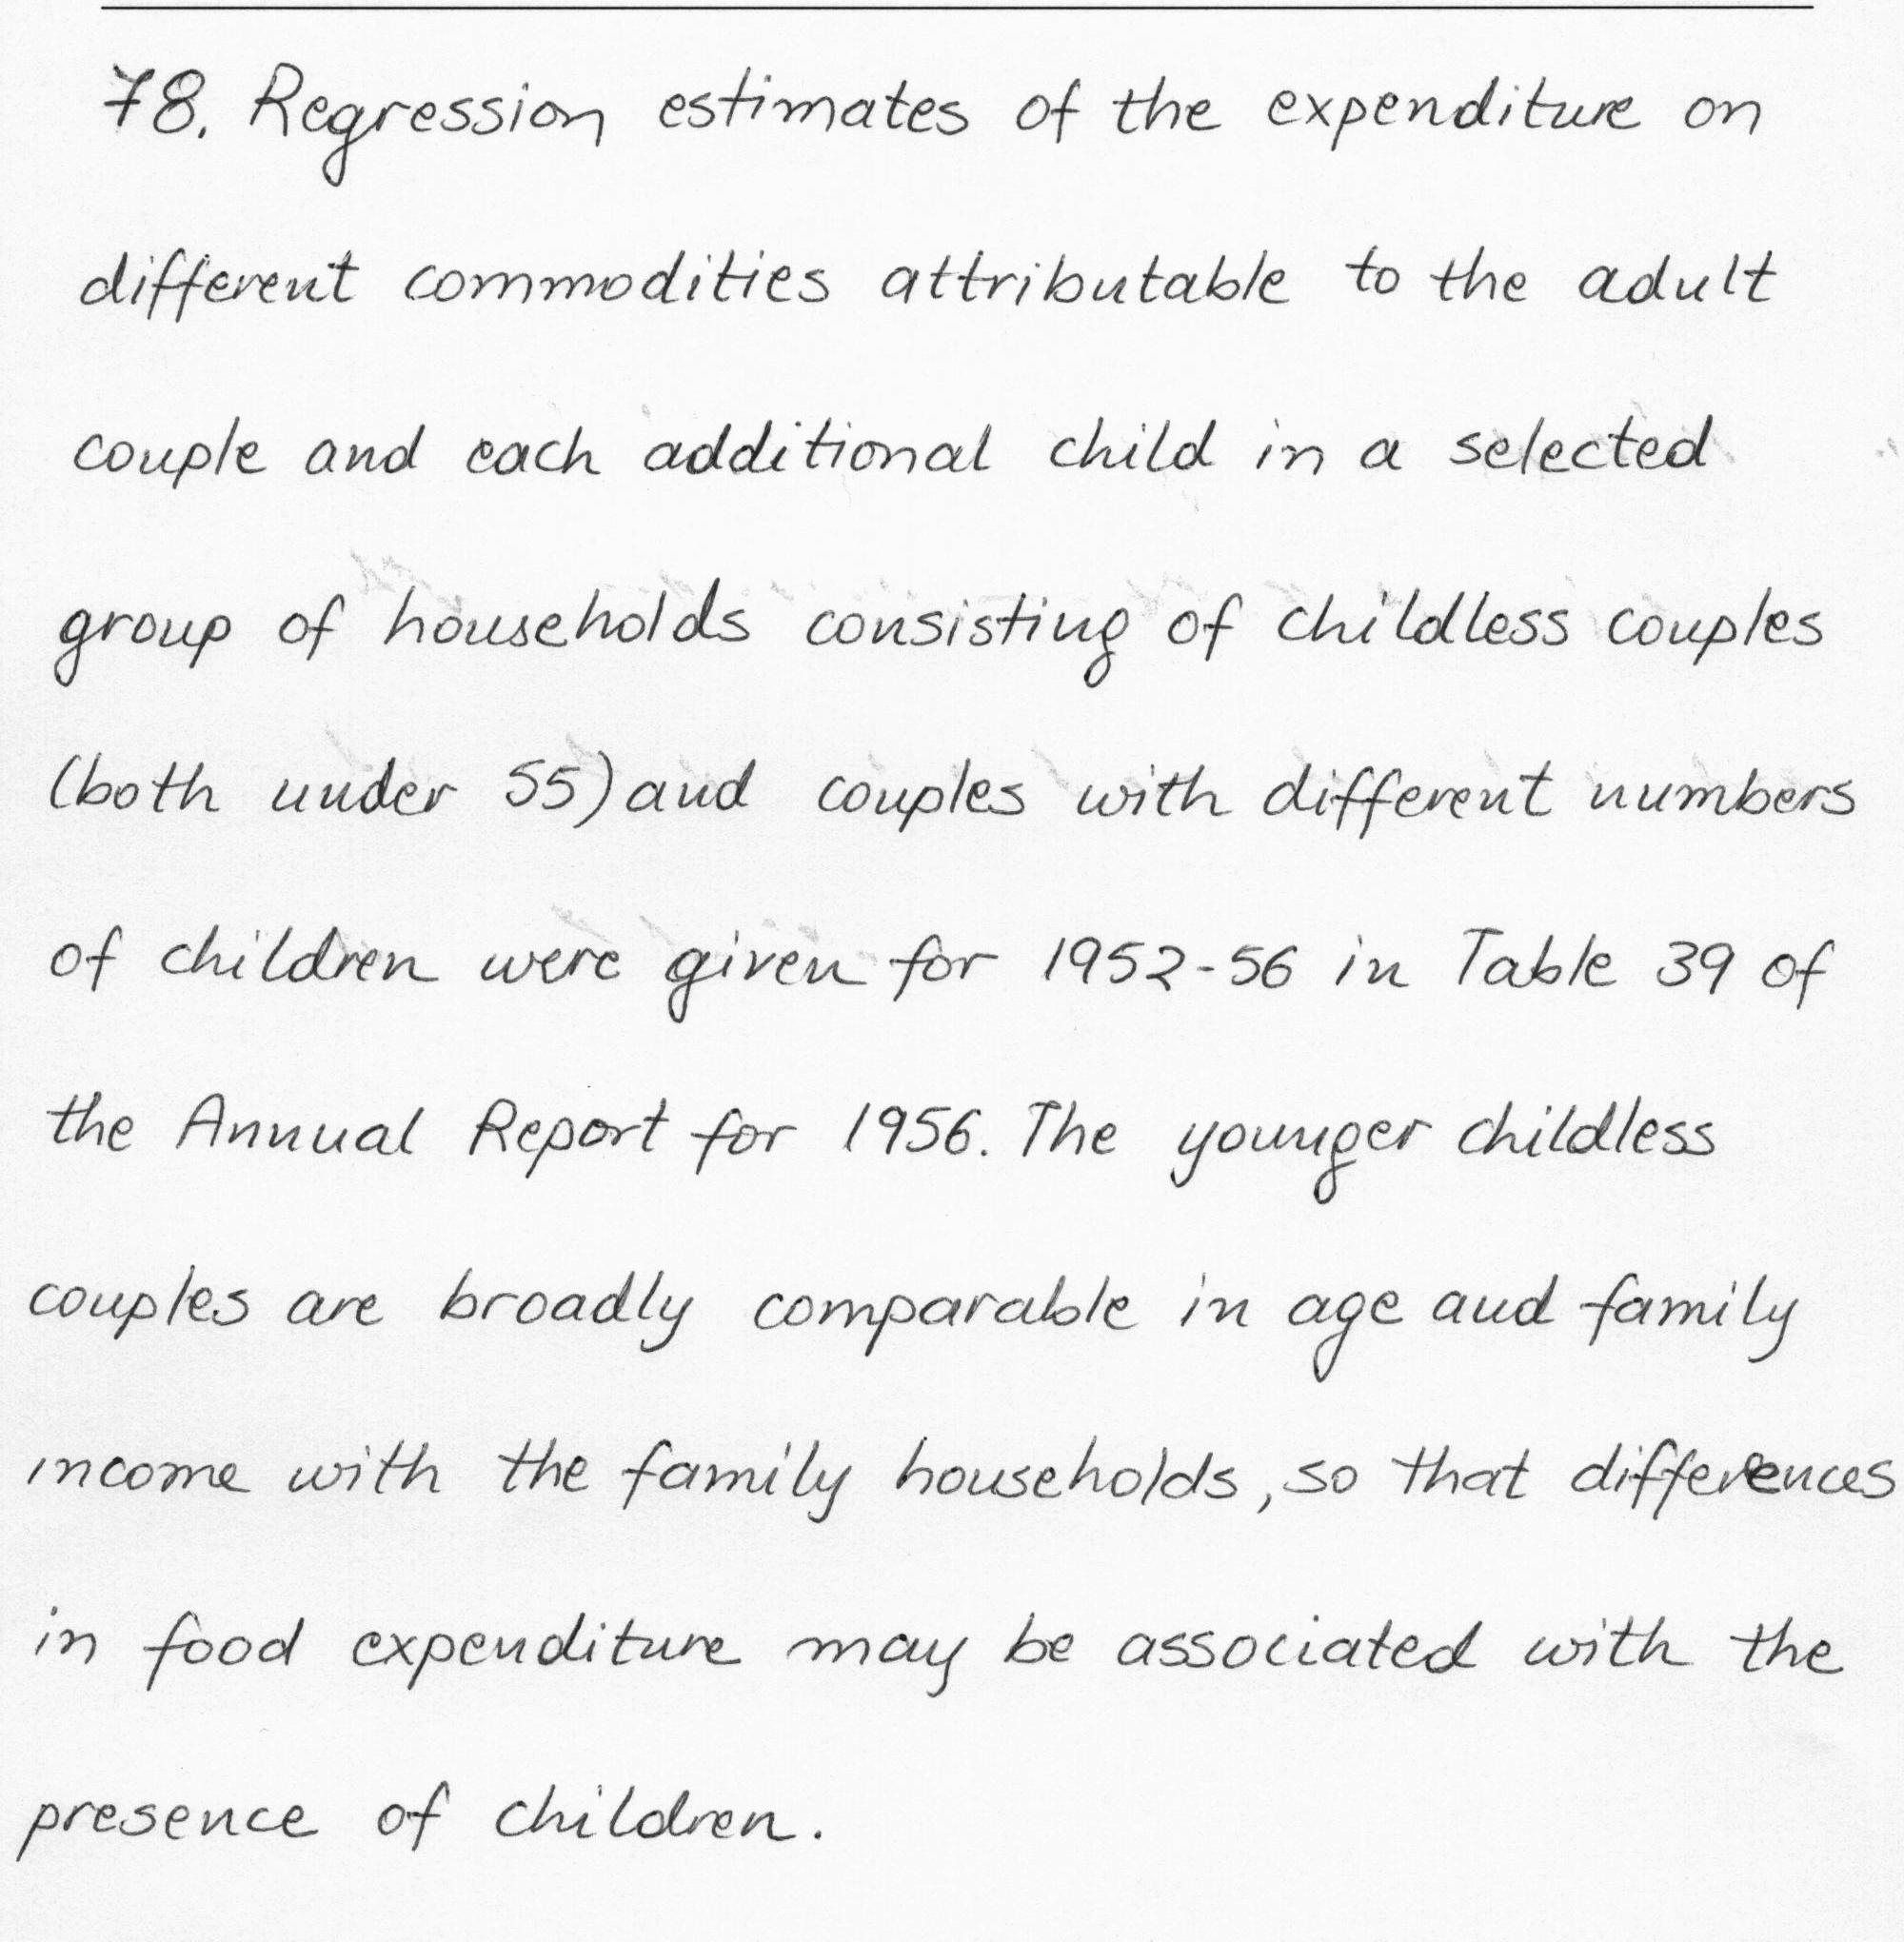 78. Regression estimates of the expenditure on
different commodities attributable to the adult
couple and each additional child in a selected
group of households consisting of childless couples
(both under 55) and couples with different numbers
of children were given for 1952-56 in Table 39 of
the Annual Report for 1956. The younger childless
couples are broadly comparable in age and family
income with the family households, so that differences
in food expenditure may be associated with the
presence of children.